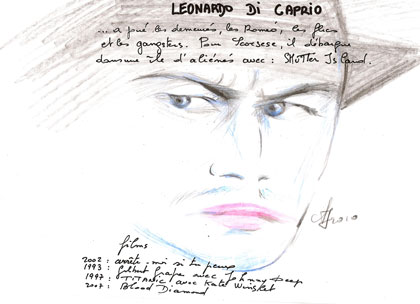 LEONARDO Di CAPRIO
... a joué les demeurés, les Roméo, les flics
et les gangsters. Pour Scorsese, il débarque
dans une île d'aliénés avec : SHUTTER ISLAND.
films
2002 : arrête-moi si tu peux
1993 : Gilbert Grape avec Johnny Deep
1997 : TITANIC avec Kate Winslet
2007 : Blood Diamond